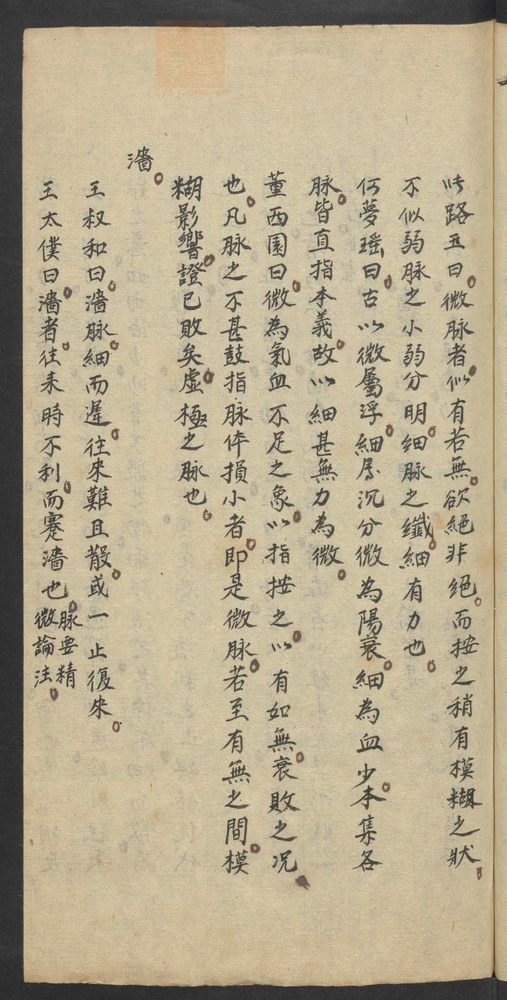 路玉曰微脉者似有若無欲絕非絕而按之稍有模糊之狀
不似弱脉之小弱分明細脉之纖細有力也
何夢瑶曰古以微屬浮細屬沉分微為陽衰細為血少本集各
脉皆直指本義故以細甚無力為微
董西園曰微為氣血不足之象以指按之似有如無衰敗之况
也凡脉之不甚鼓指脉体損小者即是微脉若至有無之間模
糊影響證已敗矣虛極之脉也
濇
王叔和曰濇脉細而遲往來難且散或一止復來
王太僕曰濇者往来時不利而蹇濇也脉要精微論注